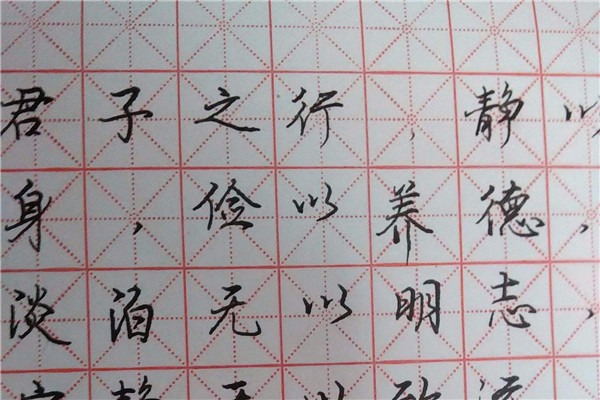 君子之行，静以
身，俭以养德，
淡泊无以明志，